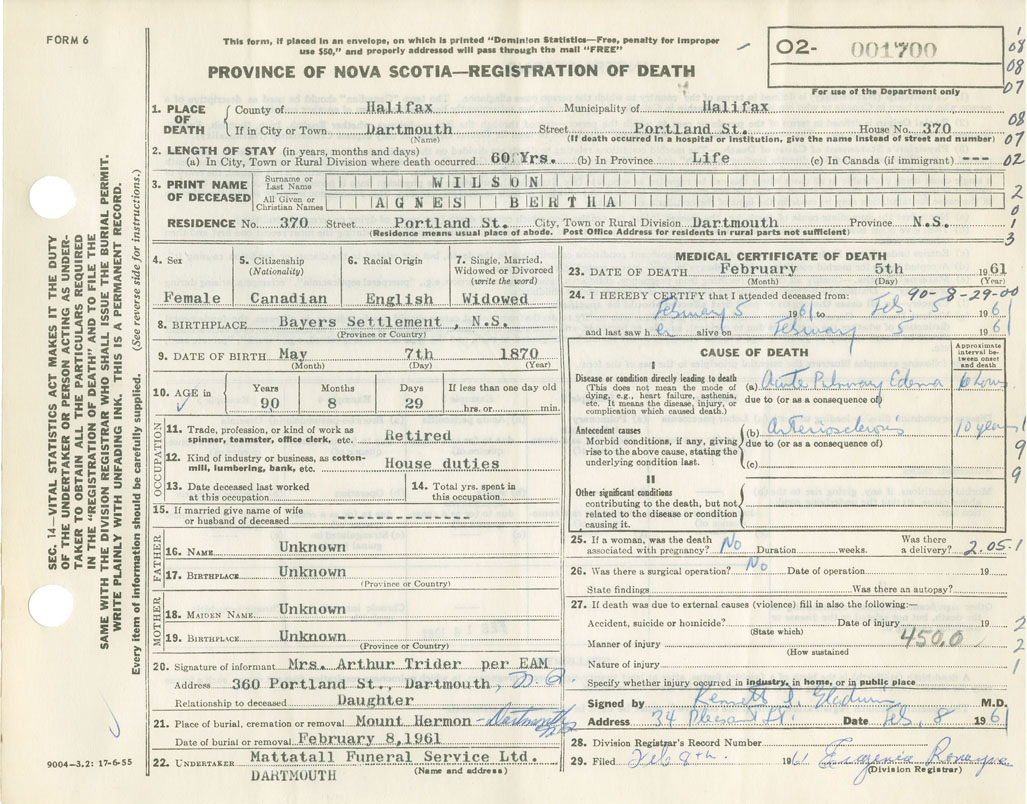 FORM 6
This form, if placed in an envelope, on which is printed "Dominion Statistics—Free, penalty for improper
use $50," and properly addressed will pass through the mail "FREE"
PROVINCE OF NOVA SCOTIA—REGISTRATION OF DEATH
02- 001700
For use of the Department only
1
08
08
07
08
07
02
2
0
1
3
SEC. 14—VITAL STATISTICS ACT MAKES IT THE DUTY
OF THE UNDERTAKER OR PERSON ACTING AS UNDER-
TAKER TO OBTAIN ALL THE PARTICULARS REQUIRED
IN THE "REGISTRATION OF DEATH" AND TO FILE THE
SAME WITH THE DIVISION REGISTRAR WHO SHALL ISSUE THE BURIAL PERMIT.
WRITE PLAINLY WITH UNFADING INK. THIS IS A PERMANENT RECORD.
Every item of information should be carefully supplied. (See reverse side for instructions.)
1. PLACE OF DEATH County of Halifax Municipality of Halifax
If in City or Town Dartmouth Street Portland St. House No. 370
(Name) (If death occurred in a hospital or institution, give the name instead of street and number)
2. LENGTH OF STAY (in years, months and days)
(a) In City, Town or Rural Division where death occurred 60 Yrs. (b) In Province Life (c) In Canada (if immigrant) ---
3. PRINT NAME OF DECEASED Surname or Last Name WILSON
All Given or Christian Names AGNES BERTHA
RESIDENCE No. 370 Street Portland St. City, Town or Rural Division Dartmouth Province N.S.
(Residence means usual place of abode. Post Office Address for residents in rural parts not sufficient)
4. Sex Female
5. Citizenship (Nationality) Canadian
6. Racial Origin English
7. Single, Married, Widowed or Divorced (write the word) Widowed
8. BIRTHPLACE Bayers Settlement , N.S.
(Province or Country)
9. DATE OF BIRTH May 7th 1870
(Month) (Day) (Year)
10. AGE in Years 90 Months 8 Days 29 If less than one day old hrs. or min.
OCCUPATION
11. Trade, profession, or kind of work as spinner, teamster, office clerk, etc. Retired
12. Kind of industry or business, as cotton-mill, lumbering, bank, etc. House duties
13. Date deceased last worked at this occupation
14. Total yrs. spent in this occupation
15. If married give name of wife or husband of deceased ---------------
FATHER
16. NAME Unknown
17. BIRTHPLACE Unknown
(Province or Country)
MOTHER
18. MAIDEN NAME Unknown
19. BIRTHPLACE Unknown
(Province or Country)
20. Signature of informant Mrs. Arthur Trider per EAM
Address 360 Portland St., Dartmouth, N.S.
Relationship to deceased Daughter
21. Place of burial, cremation or removal Mount Hermon - Dartmouth
Date of burial or removal February 8,1961
22. UNDERTAKER Mattatall Funeral Service Ltd.
DARTMOUTH (Name and address)
9004—3.2: 17-6-55
MEDICAL CERTIFICATE OF DEATH
23. DATE OF DEATH February 5th 1961
(Month) (Day) (Year)
90-8-29-00
24. I HEREBY CERTIFY that I attended deceased from:
February 5 1961 to Feb. 5 1961
and last saw her alive on February 5 1961
CAUSE OF DEATH
Approximate interval between onset and death
I
Disease or condition directly leading to death
(This does not mean the mode of dying, e.g., heart failure, asthenia, etc. It means the disease, injury, or complication which caused death.)
(a) Acute Pulmonary Edema 6 hours
due to (or as a consequence of)
Antecedent causes
Morbid conditions, if any, giving rise to the above cause, stating the underlying condition last.
(b) Arteriosclerosis 10 years
due to (or as a consequence of)
(c)
1
9
9
II
Other significant conditions
contributing to the death, but not related to the disease or condition causing it.
25. If a woman, was the death associated with pregnancy? No Duration weeks. Was there a delivery? 2.05.1
26. Was there a surgical operation? No Date of operation 19
State findings Was there an autopsy?
27. If death was due to external causes (violence) fill in also the following:—
Accident, suicide or homicide? Date of injury 19 2
(State which)
Manner of injury 450.0 2
(How sustained
Nature of injury 1
Specify whether injury occurred in industry, in home, or in public place
Signed by Kenneth M.D.
Address 34 Pleasant St. Date Feb. 8 1961
28. Division Registrar's Record Number
29. Filed Feb 8th. 1961 Eugenia
(Division Registrar)